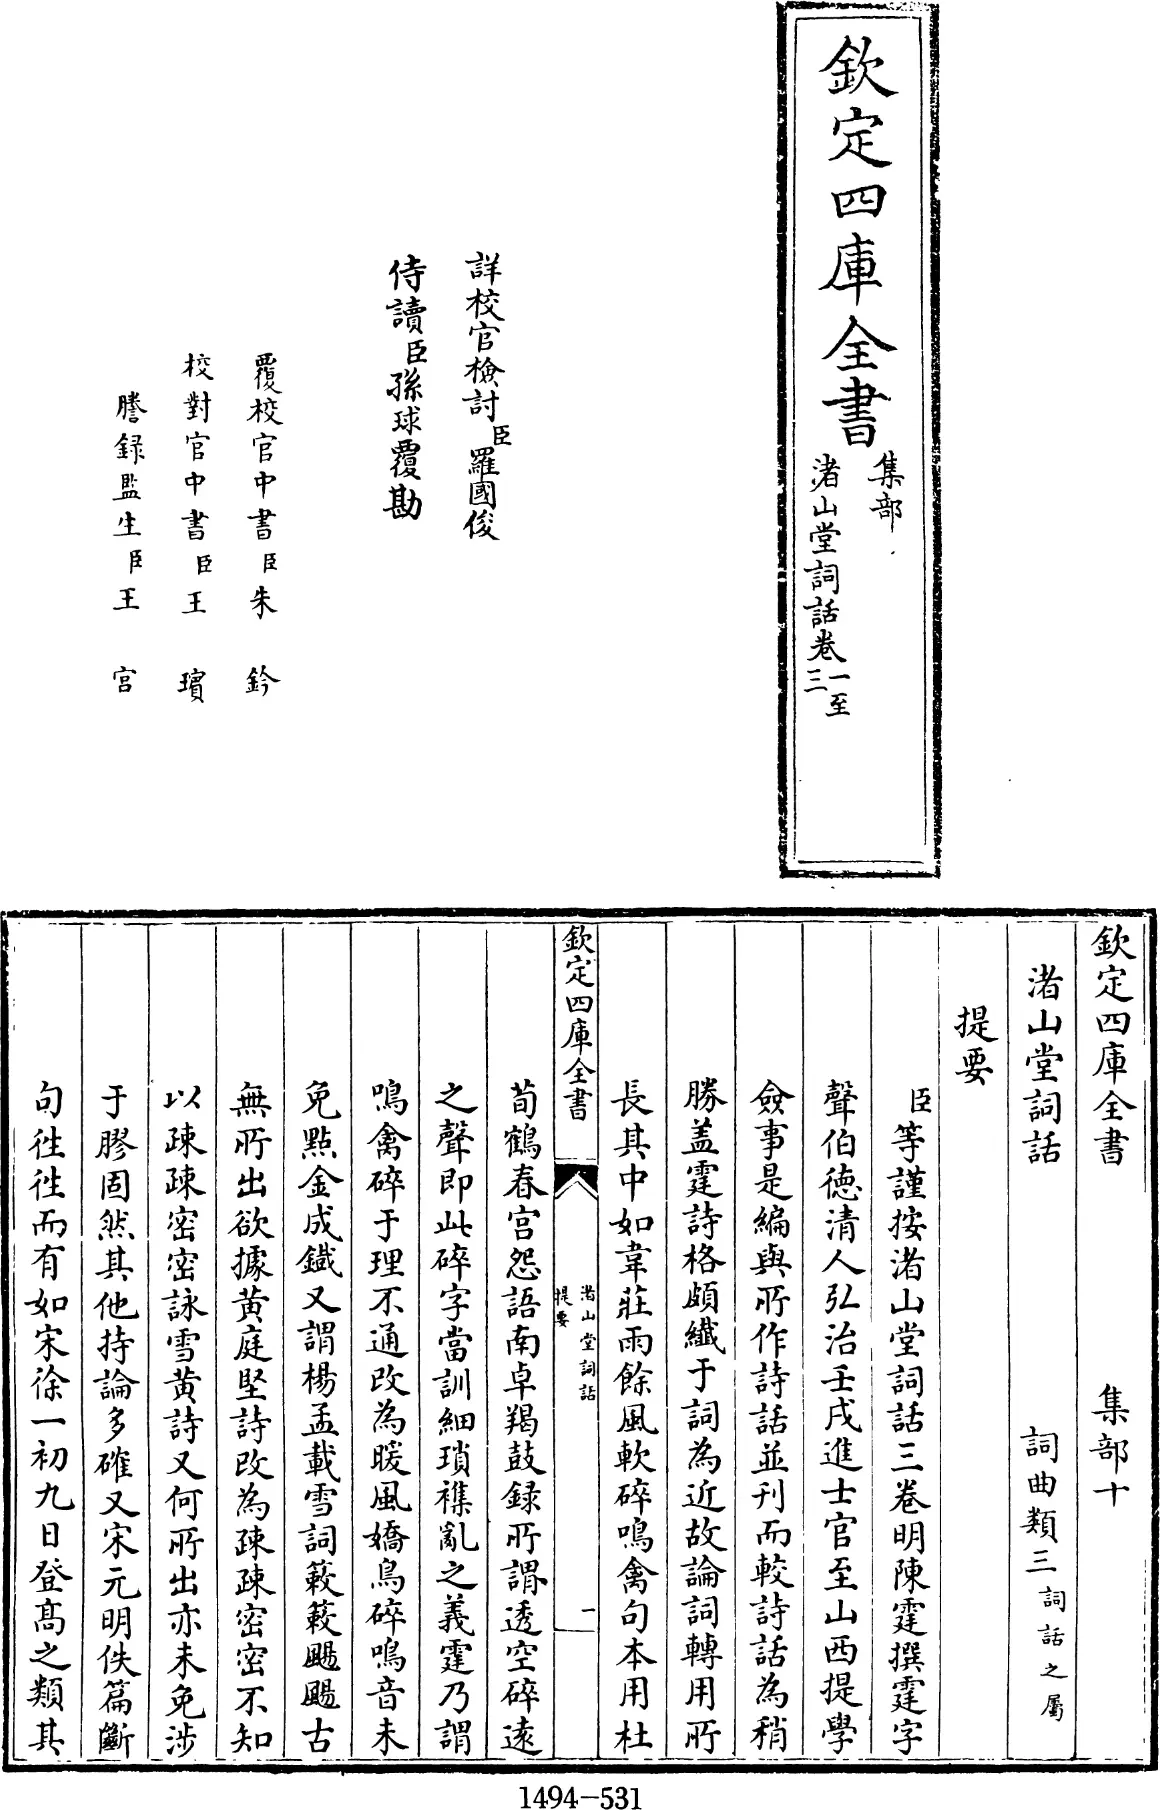 欽定四庫全書
集部
渚山堂詞話卷一至三
詳校官檢討臣羅國俊
侍讀臣孫球覆勘
覆校官中書臣朱鈐
校對官中書臣王瓆
謄録監生臣王宫
欽定四庫全書 集部十
渚山堂詞話 詞曲類三詞話之屬
提要
臣等謹按渚山堂詞話三卷明陳霆撰霆字
聲伯德清人弘治壬戌進士官至山西提學
僉事是編與所作詩話並刊而較詩話為稍
勝盖霆詩格頗纎于詞為近故論詞轉用所
長其中如韋莊雨餘風軟碎鳴禽句本用杜
欽定四庫全書 渚山堂詞話 提要 一
荀鶴春宫怨語南卓羯鼓録所謂透空碎逺
之聲即此碎字當訓細瑣襍亂之義霆乃謂
鳴禽碎于理不通改為暖風嬌鳥碎鳴音未
免點金成鐵又謂楊孟載雪詞簌簌颺颺古
無所出欲據黄庭堅詩改為疎疎密密不知
以疎疎密密詠雪黄詩又何所出亦未免涉
于膠固然其他持論多確又宋元明佚篇斷
句徃徃而有如宋徐一初九日登髙之類其
1494-531